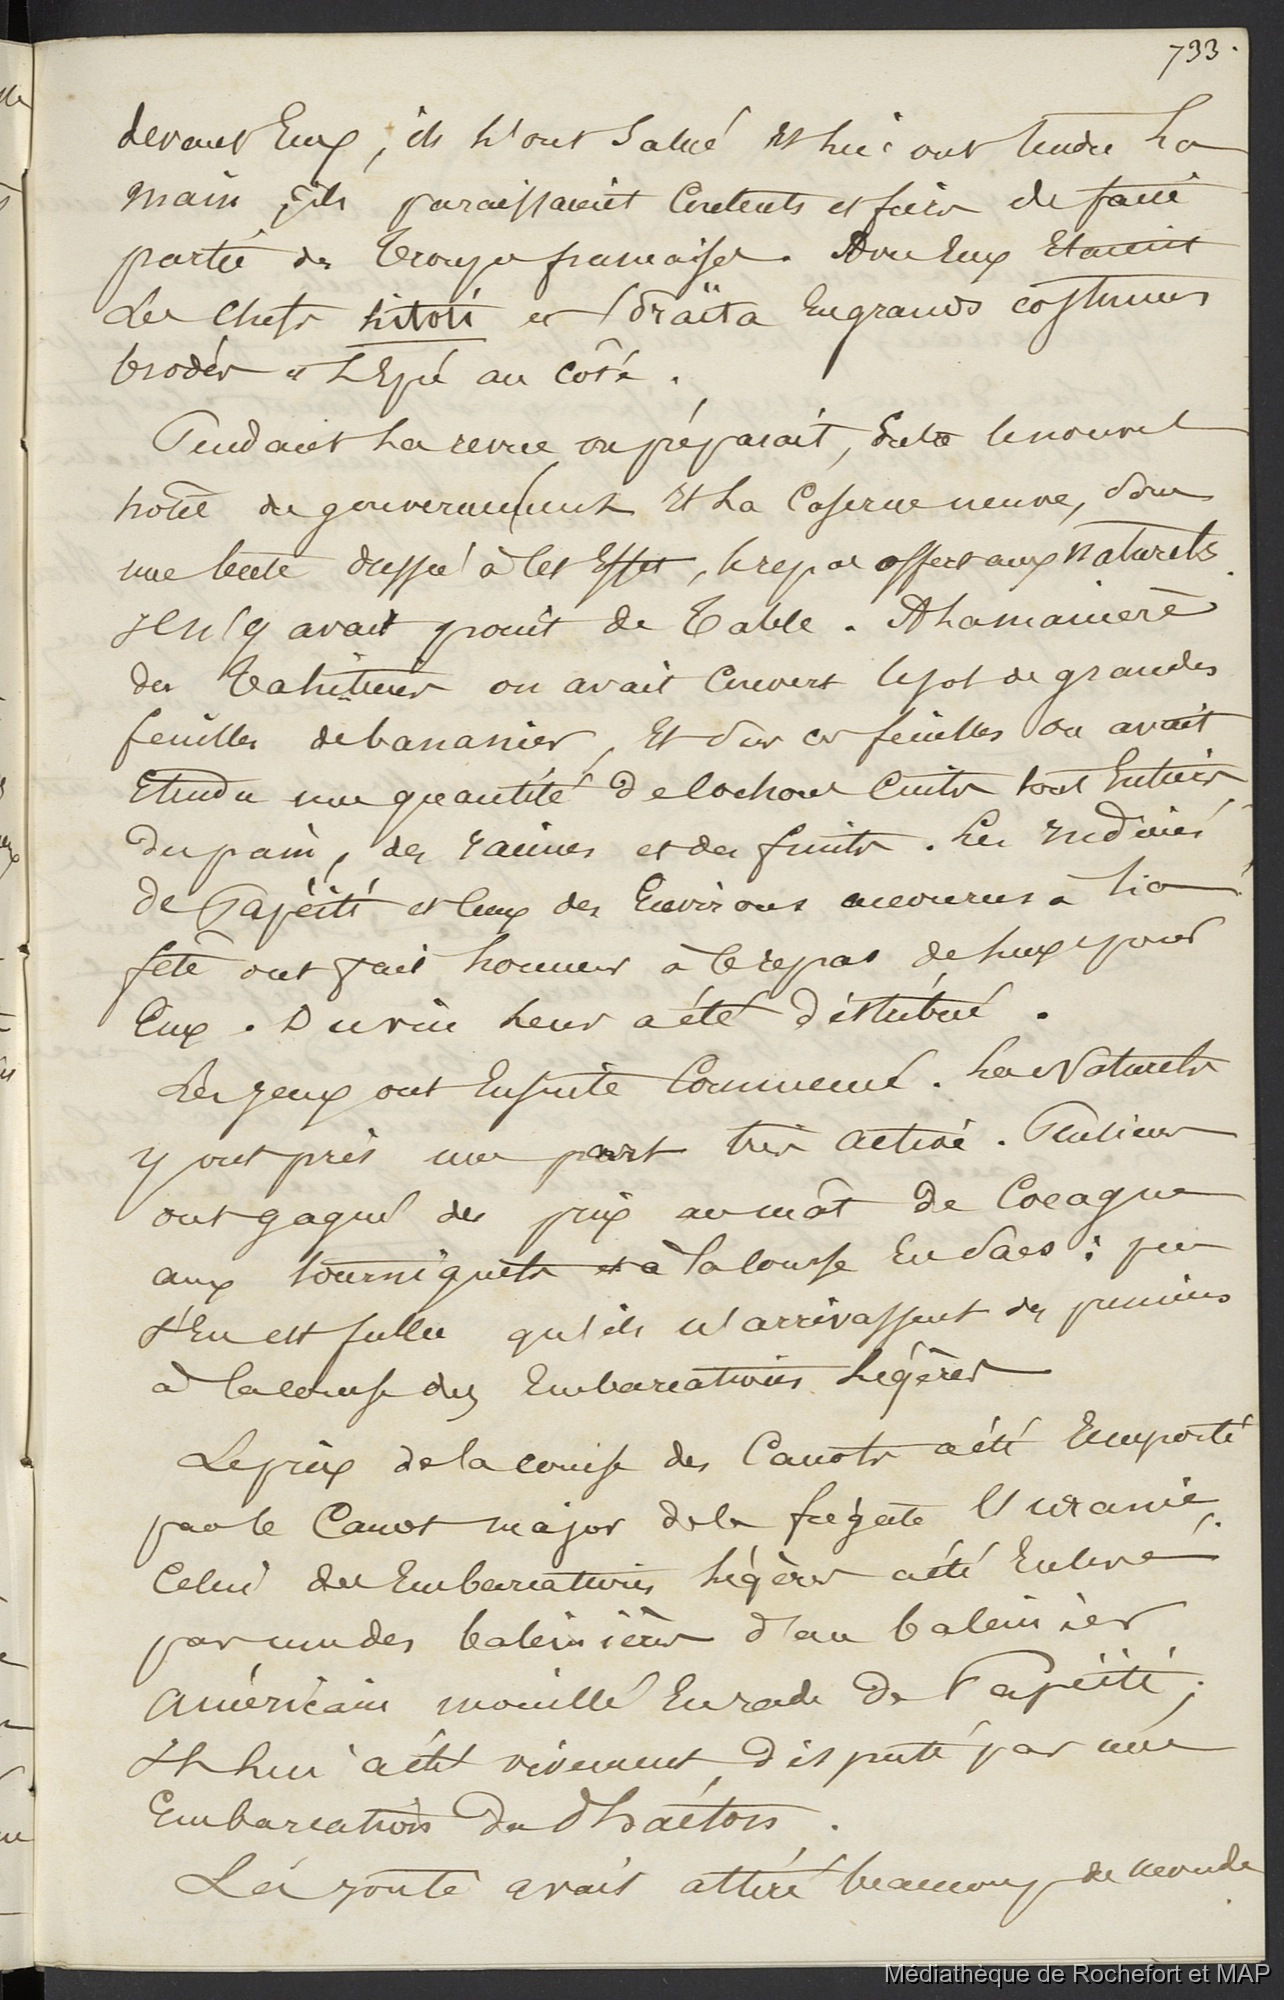 733.
devant Eux, ils l'ont salué et lui ont tendu la
main ; ils paraissaient contents et fiers de faire
partie des troupes françaises. Avec Eux Etaient
Les Chefs hitoti et draïta En grands costumes
brodés et L'Epée au côté.
Pendant La revue on préparait, Entre le nouvel
hôtel du gouvernement Et La Caserne neuve, sous
une tente dressée à cet Effet, le repas offert aux naturels.
Il n'y avait point de Table. A la manière
des Tahitiens on avait Couvert le sol de grandes
feuilles de bananier, Et sur ces feuilles on avait
Etendu une quantité de cochons Cuits tout Entiers
du pain, des racines et des fruits. Les Indiens
de Papéïti et ceux des Environs accourus à la
fête ont fait honneur à ce repas de luxe pour
Eux. Du vin Leur a été distribué.
Les jeux ont Ensuite Commencé. Les Naturels
y ont pris une part très active. Plusieurs
ont gagné des prix au mât de Cocagne
aux tourniquets et à la course En sacs ; peu
s'En est fallu qu'ils n'arrivassent des premiers
à la course des Embarcations Légères
Le prix de la course des Canots a été Emporté
par le Canot major de la frégate l'Uranie,
Celui des Embarcations Légères a été Enlevé
par une des baleinières d'un baleinier
américain mouillé En rade de Papéïti ;
Il lui a été vivement disputé par une
Embarcation du Phaéton.
La joute avait attiré beaucoup de monde
Médiathèque de Rochefort et MAP